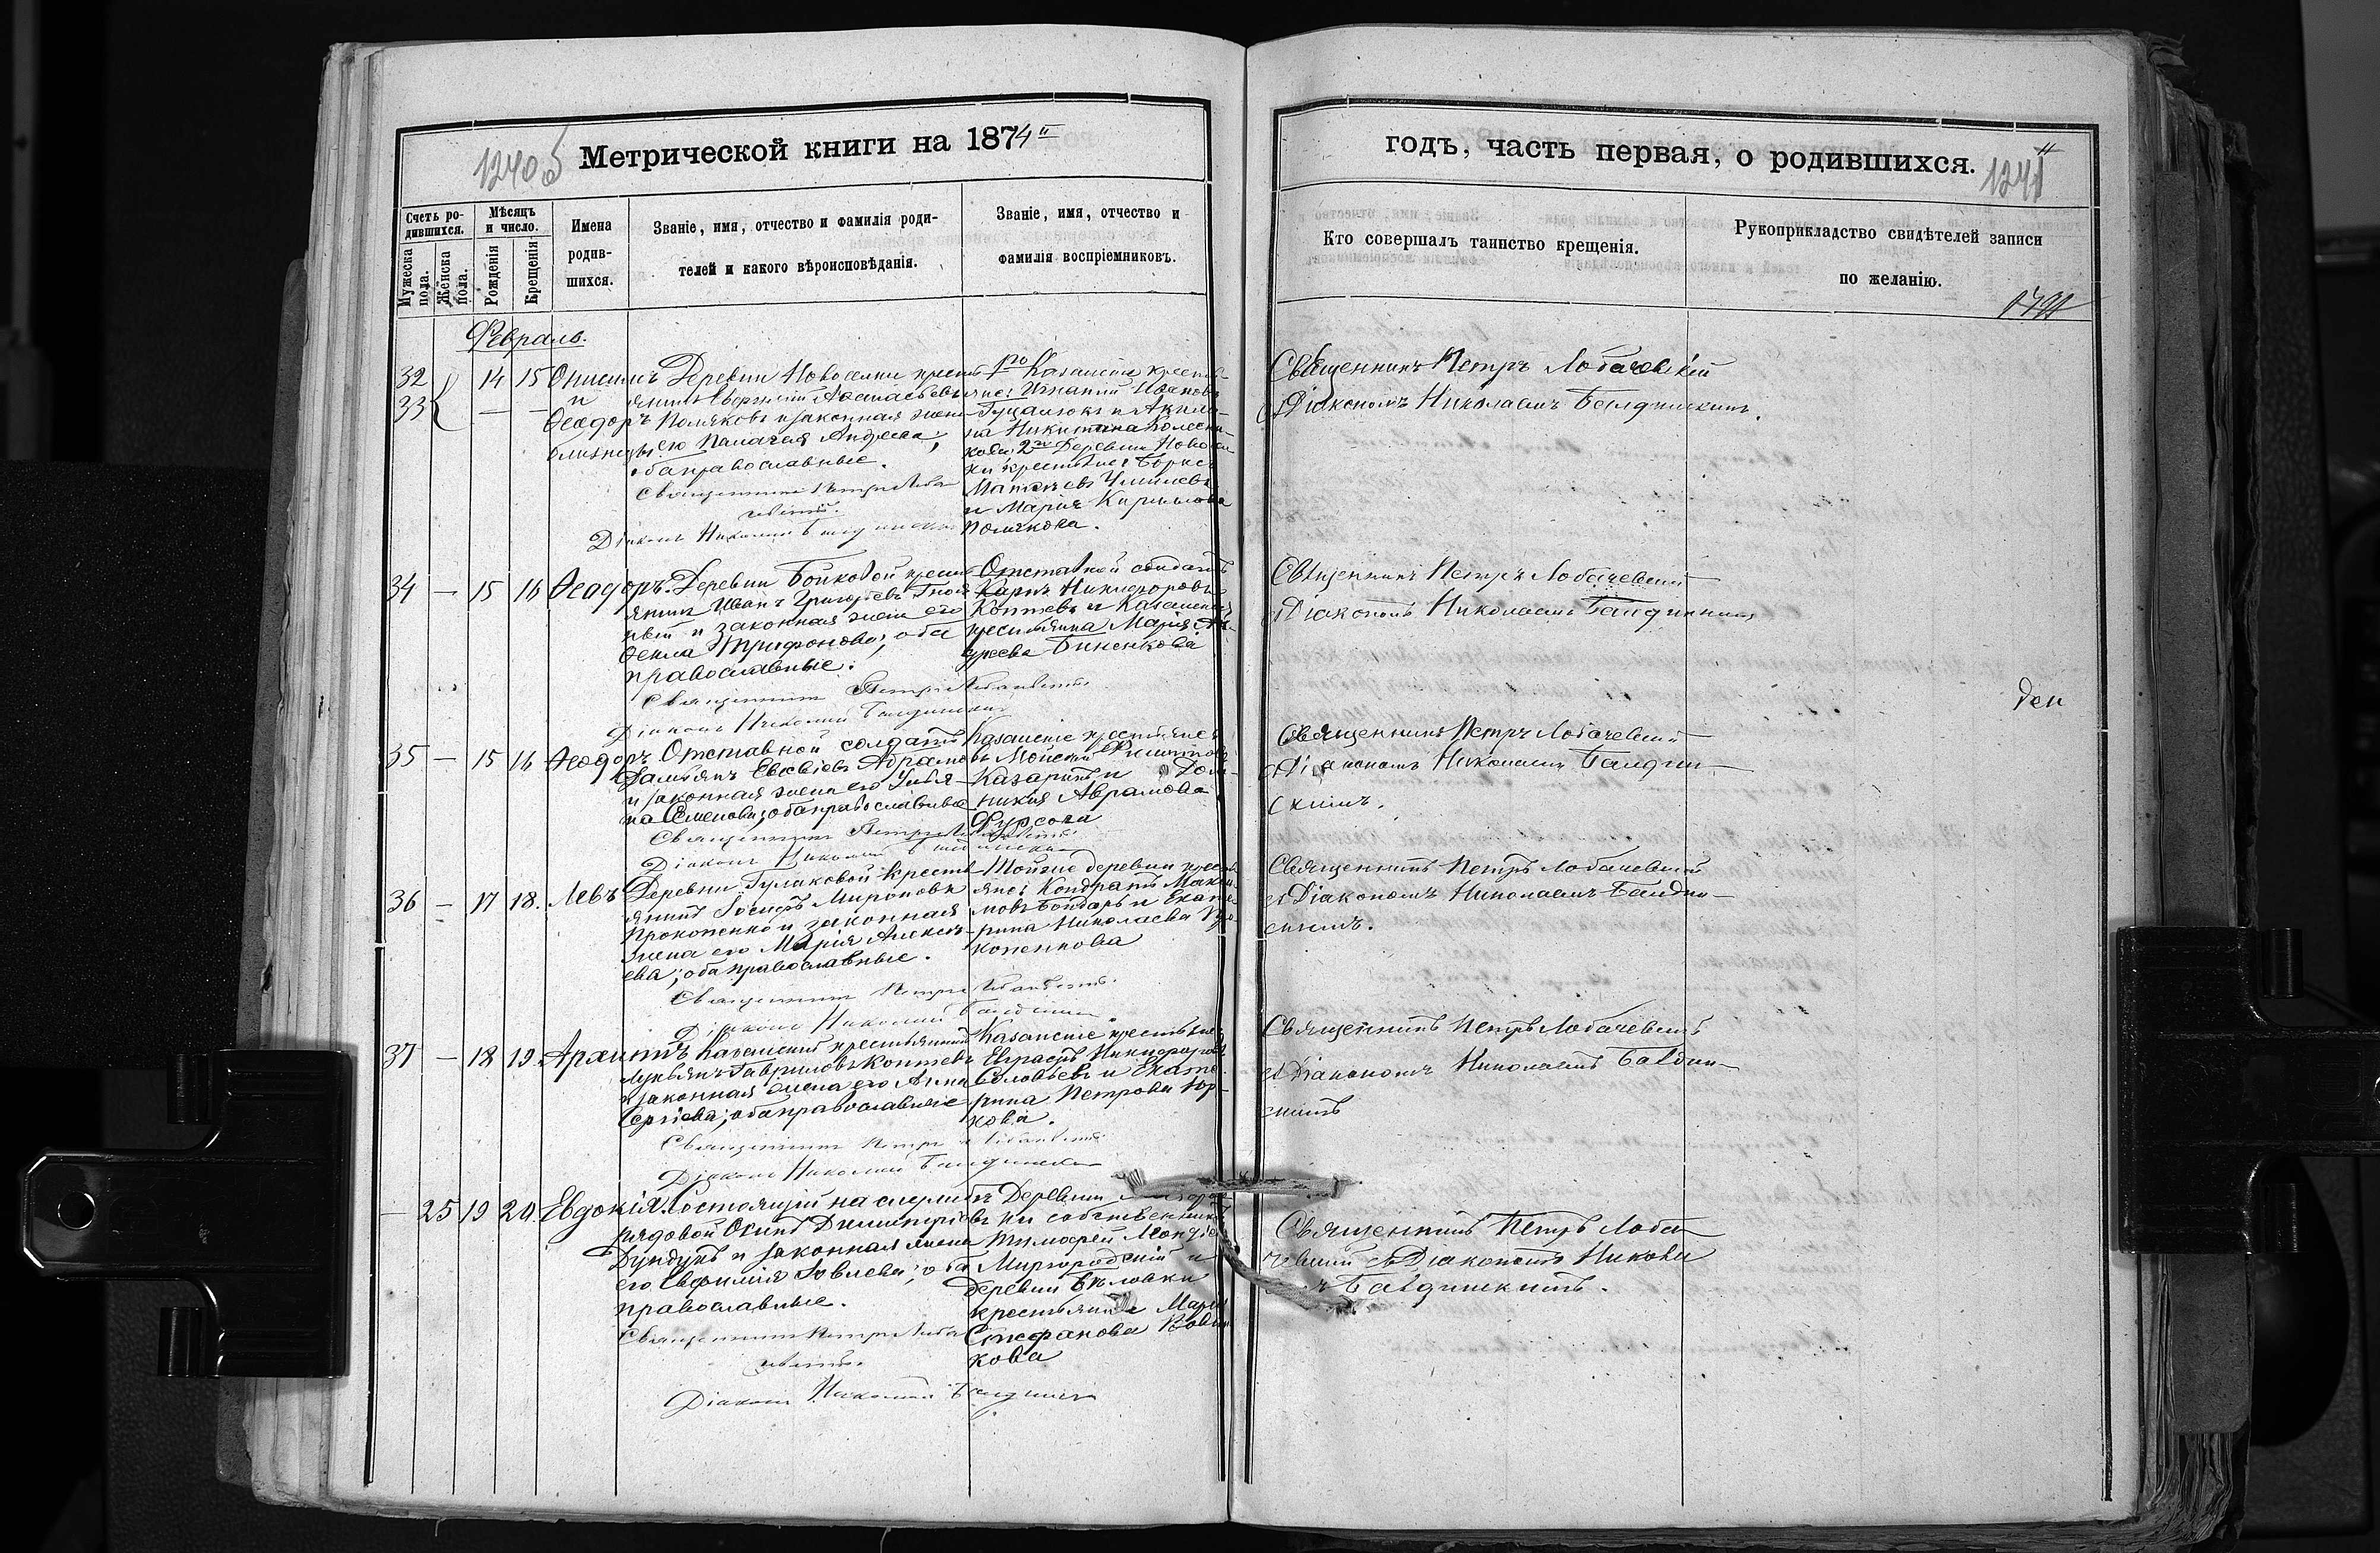 1240об
Метрической книги на 1874
Счетъ ро-
дившихся.
Мѣсяцъ
и число.
Мужеска
пола.
Женска
пола.
Рожденія
Крещенія
Имена
родив-
шихся.
Званіе, имя, отчество и фамилія роди-
телей и какого вѣроисповѣданія.
Званіе, имя, отчество и
фамилія воспріемниковъ.
Февраль.
32 14 15 Онисимъ Деревни Новоселки крестья-
33 — — и янинъ Афанасьевъ
Ѳеодоръ Поляковъ и законная жена
близнецы его Андреева;
оба православные.
Священникъ Петръ Лоба-
чевскій.
Діаконъ Николай
1го Казанскіе крестья-
яне: Игнатій Ивановъ
и Акили-
на Никитина
кова, 2го Деревни Новосел-
ки крестьяне: Борисъ
Матвеевъ
и Марія Кирилова
Полякова.
34 — 15 16 Ѳеодоръ. Деревни Бойковой крестья-
янинъ Иванъ Григорьевъ
и законная жена его
Ѳекла Трифонова; оба
православные.
Священникъ Петръ Лобачевскій
Діаконъ Николай
Отставной солдатъ
Карпъ Никифоровъ
Коптевъ и Казанская
крестьянка Марія Ан-
дреева Биненкова
35 — 15 16 Ѳеодоръ Отставной солдатъ
Дамьянъ Евсевіевъ Абрамовъ
и законная жена его Улья-
на Семенова; оба православные
Священникъ Петръ Лобачевскій
Діаконъ Николай
Казанскіе крестьяне:
Мойсей Филиповъ
Казаринъ и Дом-
никія Аврамова
Фурсова
36 — 17 18. Левъ Деревни Гулаковой крестья-
янинъ Іосифъ Мироновъ
Прокопенко и законная
жена его Марія Алексѣ-
ева; оба православные.
Священникъ Петръ Лобачевскій.
Діаконъ Николай
Тойже деревни крестья-
яне: Кондратъ Макси-
мовъ Бондарь и Екате-
рина Николаева Про-
копенкова
37 — 18 19 Архипъ Казанскій крестьянинъ
Лукьянъ Гавриловъ Коптевъ
и законная жена его Анна
Сергіева; оба православные
Священникъ Петръ Лобачевскій
Діаконъ Николай
Казанскіе крестьяне:
Евграфъ Никифоровъ
Соловьевъ и Екате-
рина Петрова Юр-
кова.
— 25 19 20. Евдокія. Состоящій на службѣ
рядовой Осипъ Димитріевъ
Дундукъ и законная жена
его Евфимія Іовлева; оба
православные.
Священникъ Петръ Лоба-
чевскій.
Діаконъ Николай
Деревни
ки собственникъ
Тимофей
Миргородскій и
деревни Бѣловки
крестьянка Марія
Стефанова
кова
годъ, часть первая, о родившихся.
1241
Кто совершалъ таинство крещенія.
Рукоприкладство свидѣтелей записи
по желанію.
Священникъ Петръ Лобачевскій
съ Діакономъ Николаемъ Балдинскимъ.
Священникъ Петръ Лобачевскій
съ Діакономъ Николаемъ Балдинскимъ
Священникъ Петръ Лобачевскій
съ Діакономъ Николаемъ Балдин-
скимъ.
Священникъ Петръ Лобачевскій
съ Діакономъ Николаемъ Балдин-
скимъ.
Священникъ Петръ Лобачевскій
съ Діакономъ Николаемъ Балдин-
скимъ
Священникъ Петръ Лоба-
чевскій съ Діакономъ Никола
Балдинскимъ.